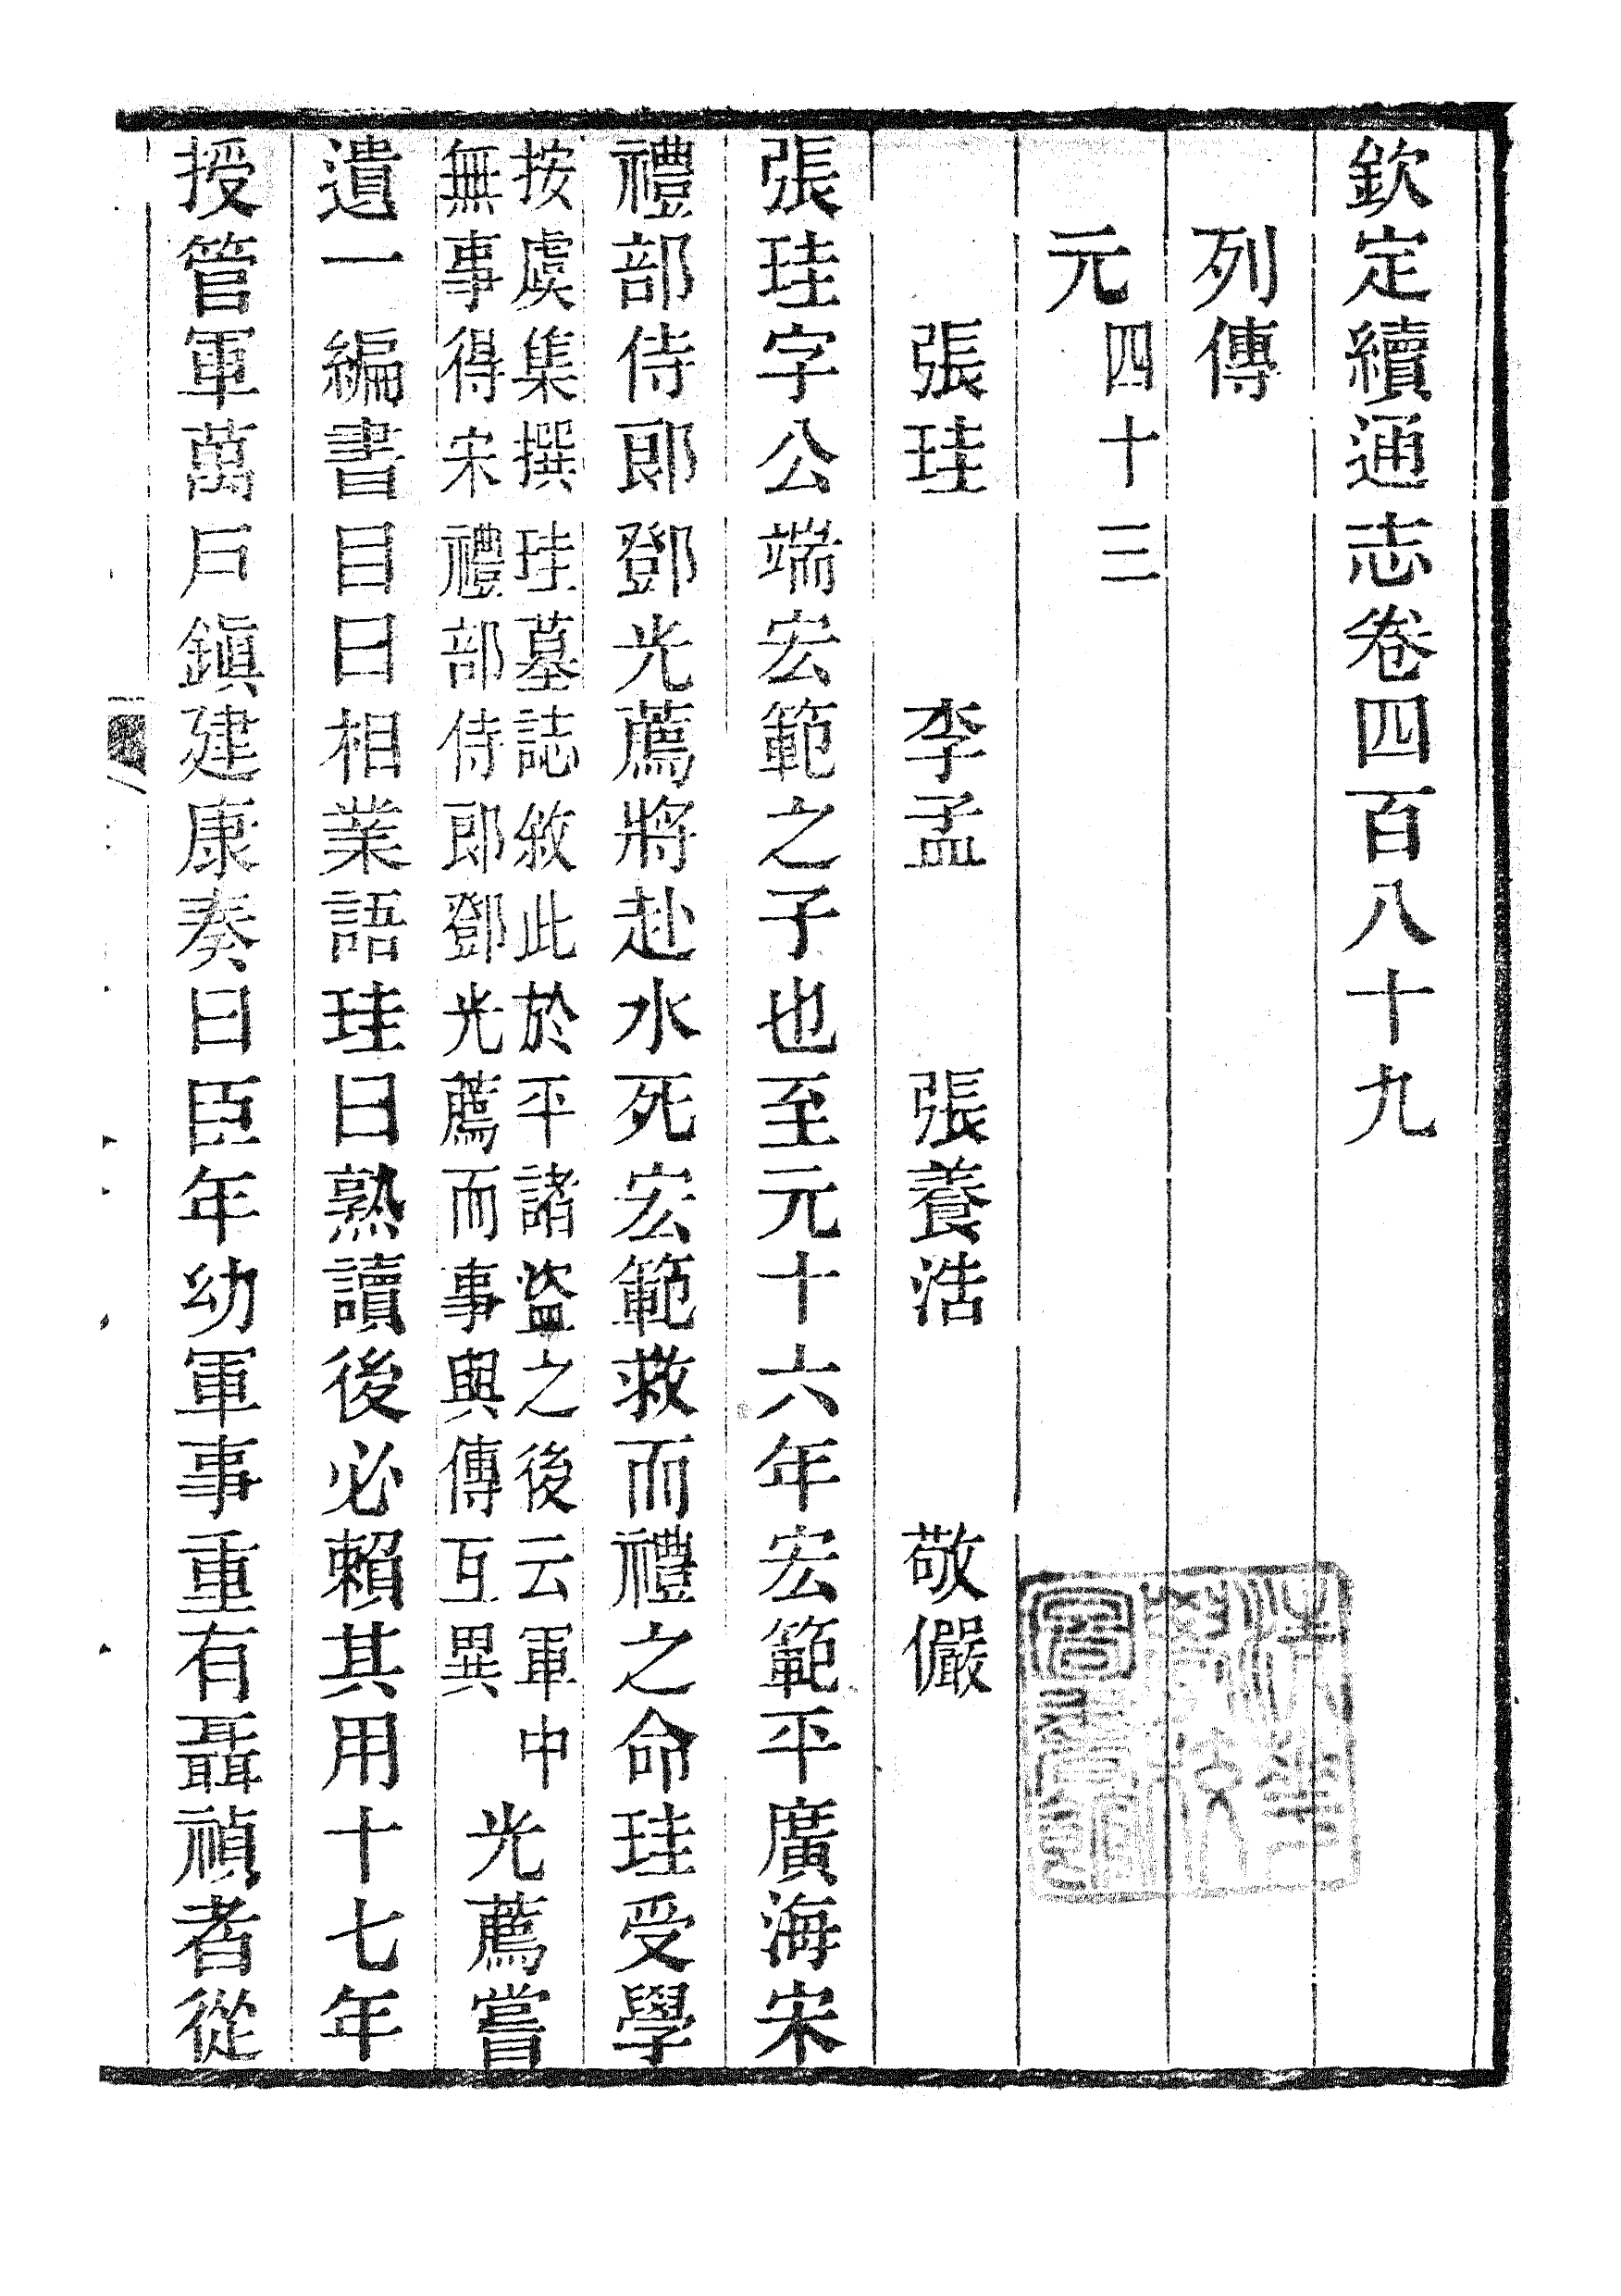 欽定續通志卷四百八十九
列傳
元四十三
張珪　李孟　張養浩　敬儼
張珪字公端宏範之子也至元十六年宏範平廣海宋
禮部侍郎鄧光薦將赴水死宏範救而禮之命珪受學
按虞集撰珪墓誌敘此於平諸盜之後云軍中
無事得宋禮部侍郎鄧光薦而事與傳互異
光薦嘗
遺一編書目曰相業語珪曰熟讀後必賴其用十七年
授管軍萬戶鎮建康奏曰臣年幼軍事重有聶禎者從